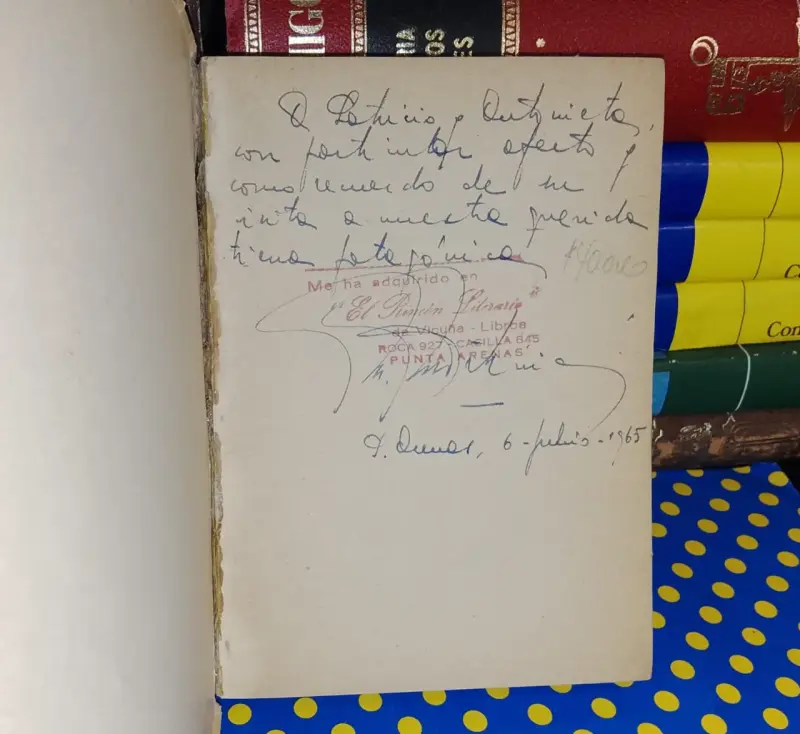 IGO
A Patricio y Antonieta,
con particular afecto y
como recuerdo de su
visita a nuestra querida
tierra patagónica
Me ha adquirido en
"El Rincón Literario"
de Vicuña - Libros
ROCA 927 - CASILLA 645
PUNTA ARENAS
P. Arenas, 6 - julio - 1965
Con